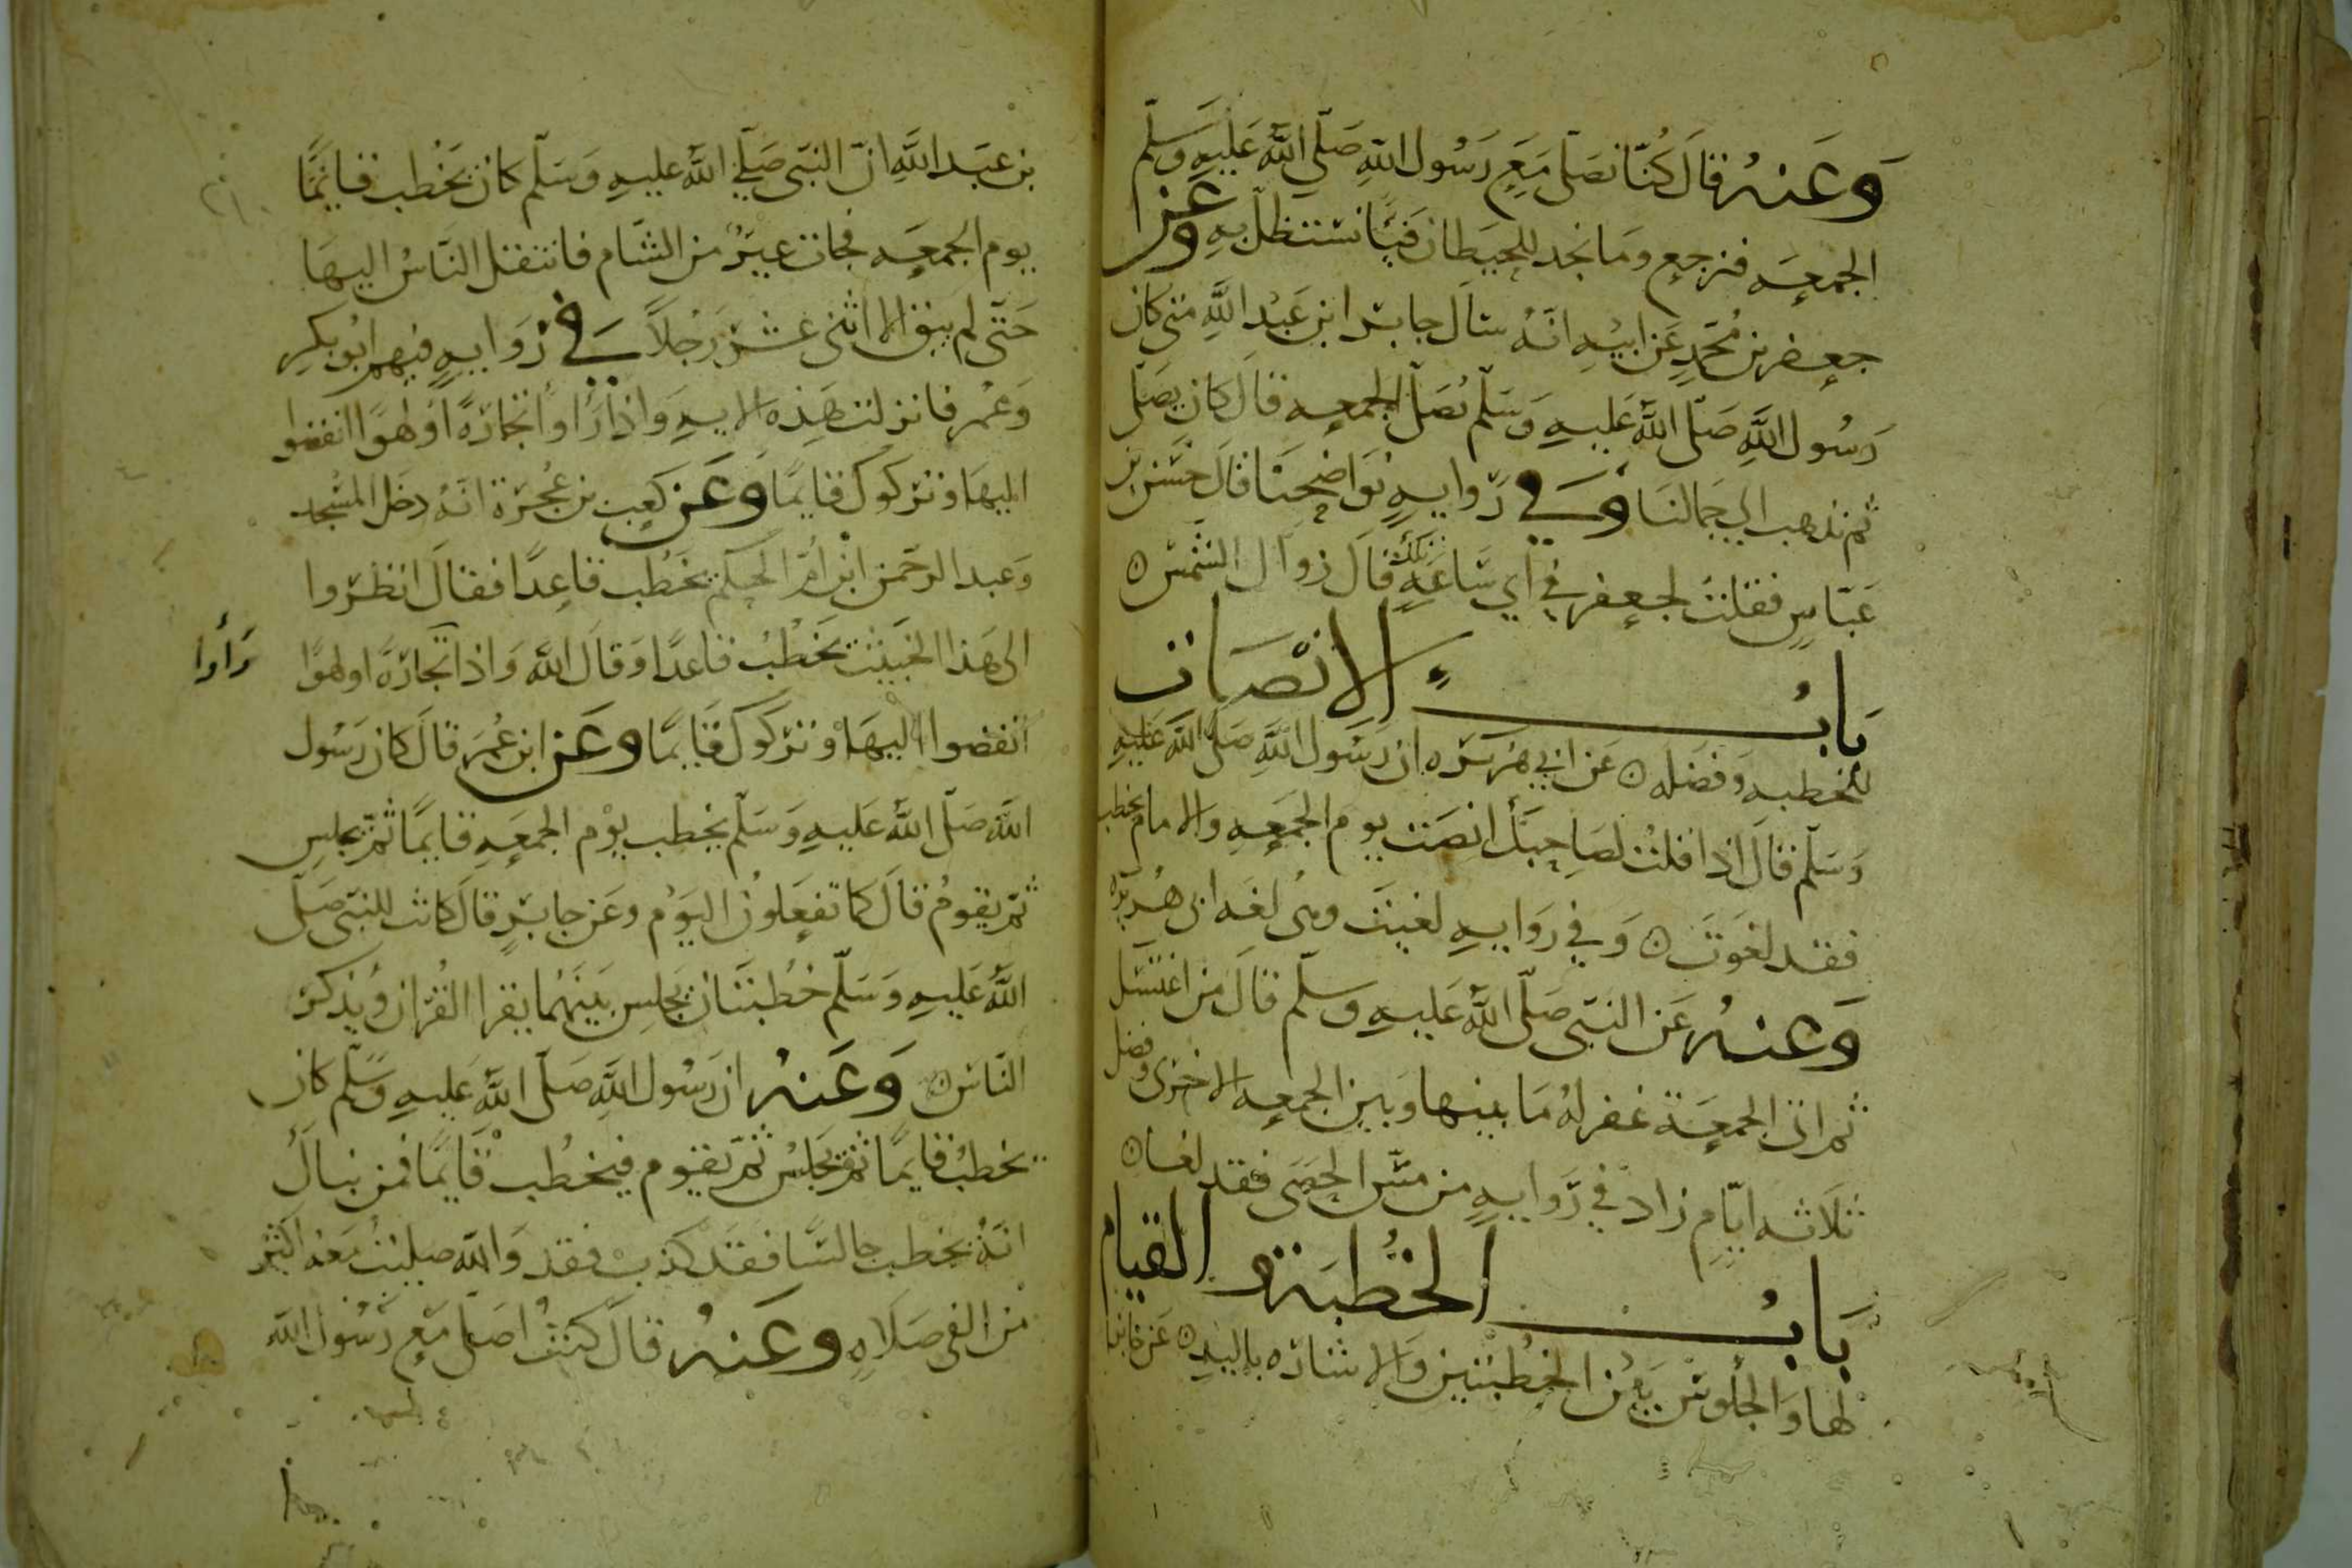 وَعَنهُ قالَ كُنّا نصَلّى مَعَ رَسُول اللهِ صَلّى اللهُ عَلَيهِ وَسَلّم
الجمعَه فنرجع ومَا نجد للحيَطان فَيئًا نستظلّ بهِ وعن
جعفر بن مُحَمّدٍ عَن ابيْهِ انّهُ سَال جابر ابن عَبْد اللهِ متى كان
رَسُول اللهِ صَلّى اللهُ عَليهِ وَسَلّم يُصَلّ الجمعه قالَ كان يصَلّى
ثم نذهب الى جمالنا وَفي رّوايهٍ نوَاضِحَنا قالَ حَسَن بن
عَبّاسٍ فقلتُ لجعفر في اي سَاعَهٍ تلك قالَ زوَال الشمسْ ه
بابُ الانْصَات
للخطبه وَفضله ه عَن ابي هُريرَه ان رَسُول اللهِ صَلّى الله عَليهِ
وَسَلّم قالَ اذا قلتُ لصَاحِبكَ انصَت يوم الجمَعهِ والامام يخطب
فقد لغوَت ه وَفي رَوايهٍ لغيتَ وهى لغَه ابى هُريره
وَعنهُ عَن النَبى صَلّى اللهُ عَليهِ وسلّم قالَ من اغتسَل
ثم اتى الجمعَة غفر لهُ مَا بينها وَبين الجمعه الاخرَى وفضل
ثلاثه ايّامٍ زاد في رّوايهٍ من مَسّ الحصَى فقد لغا ه
بَابُ الخُطبَة والقيام
لها وَالجُلوسْ بَيْن الخطبتين وَالاشاره باليدِ ه عَن جابر
بن عبَد اللهِ انّ النبّى صَلّى اللهُ عليهِ وَسَلّم كان يَخْطب قايمًا
يوم الجمعَه فجات عيرٌ من الشّام فانتقل النّاسُ اليهَا
حَتّى لم يبق الا اثنى عشَر رَجُلاً وَفي رْوايهٍ فيهم ابُو بكرٍ
وَعُمر فانزلت هَذِه الايهِ وَاذا رَأوا تجارَةً اوْ لهوًا انفضوا
اليهَا وَترَكوكَ قايمًا وَعَن كعَب بن عُجْرَة انّهُ دخل المسْجد
وَعبد الرحّمن ابن اُمّ الحَكم يخَطُب قاعِدًا فقالَ انظرُوا
الى هَذا الخَبيْثِ يَخْطُبُ قاعدًا وَقالَ اللهُ وَاذا تَجارَةً اولهوًا
رَأوا
انفضوا اليهَا وَترَكوكَ قَايمًا وَعَن ابن عُمَر قالَ كان رَسُول
اللهِ صَلّى اللهُ عَليهِ وَسَلّم يخطب يوْم الجمعَهِ قايمًا ثمّ يجلسِ
ثمّ يقومُ قالَ كما تفعَلوُنَ اليَوْم وعَن جابرٍ قالَ كانت للنبّى صَلّى
اللهُ عَليهِ وَسَلّم خُطبتَان يَجلِسِ بَينَهُما يقرا القُرْان وَيُذكرّ
النّاسْ ه وَعَنهُ ان رَسُول اللهِ صَلّى اللهُ عَليهِ وَسَّلّم كان
يخطبُ قايمًا ثمّ يَجلِسُ ثمّ يَقوم فيخطُب قايمًا فمن
انّهُ يخطب جالسًا فقَد كذب فقد وَاللهِ صليتُ مَعَهُ اكثر
من الفى صَلاهٍ وعَنهُ قالَ كنتُ اصَلّى مَع رَسُول اللهِ